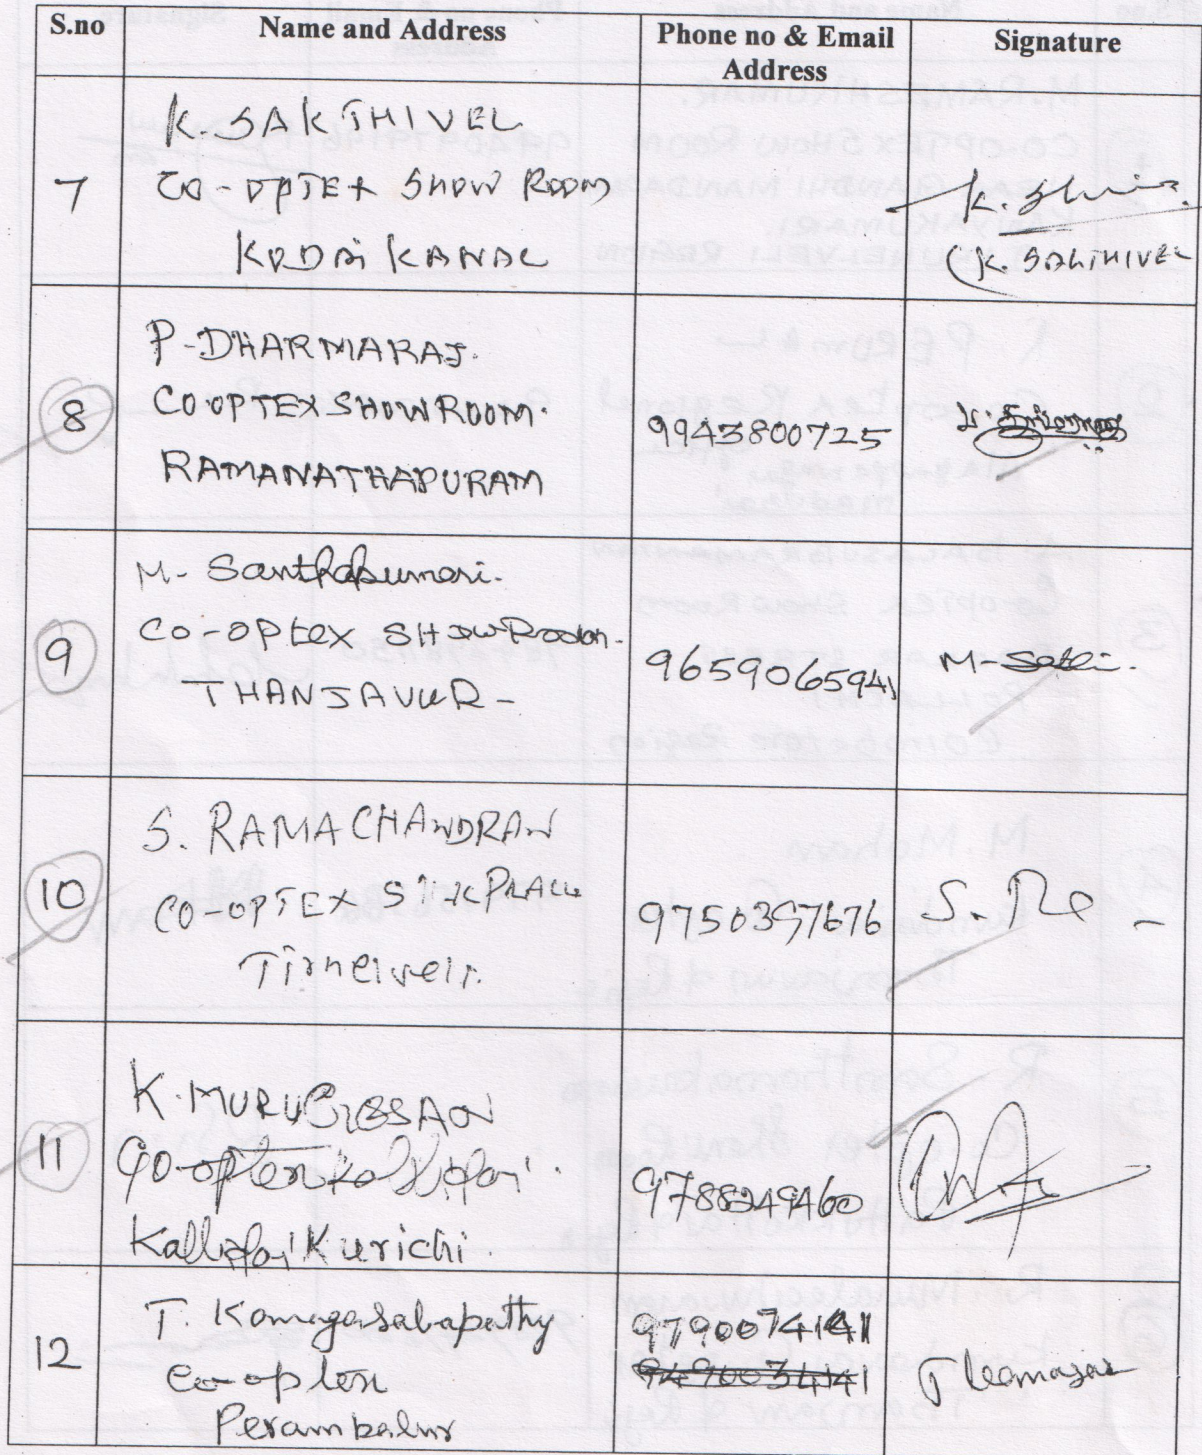 S.no Name and Address Phone no & Email Address Signature
7
K. SAKTHIVEL
CO-OPTEX SHOW ROOM
KODAI KANAL
K. (K. SAKTHIVEL
8
P-DHARMARAJ.
CO OPTEX SHOW ROOM.
RAMANATHAPURAM
9943800725
9
M- Santhakumari.
CO-OPtex SHOW Room-
THANJAVUR-
9659065941
M-
10
S. RAMACHANDRAN
CO-OPTEX
Tirnelveli.
9750397676
S.
11
K. MURUGESAN
Co-optex
Kallidai Kurichi.
9788249460
12
T. Kamagasabapathy
Co-optex
Perambalur
9790074141
T